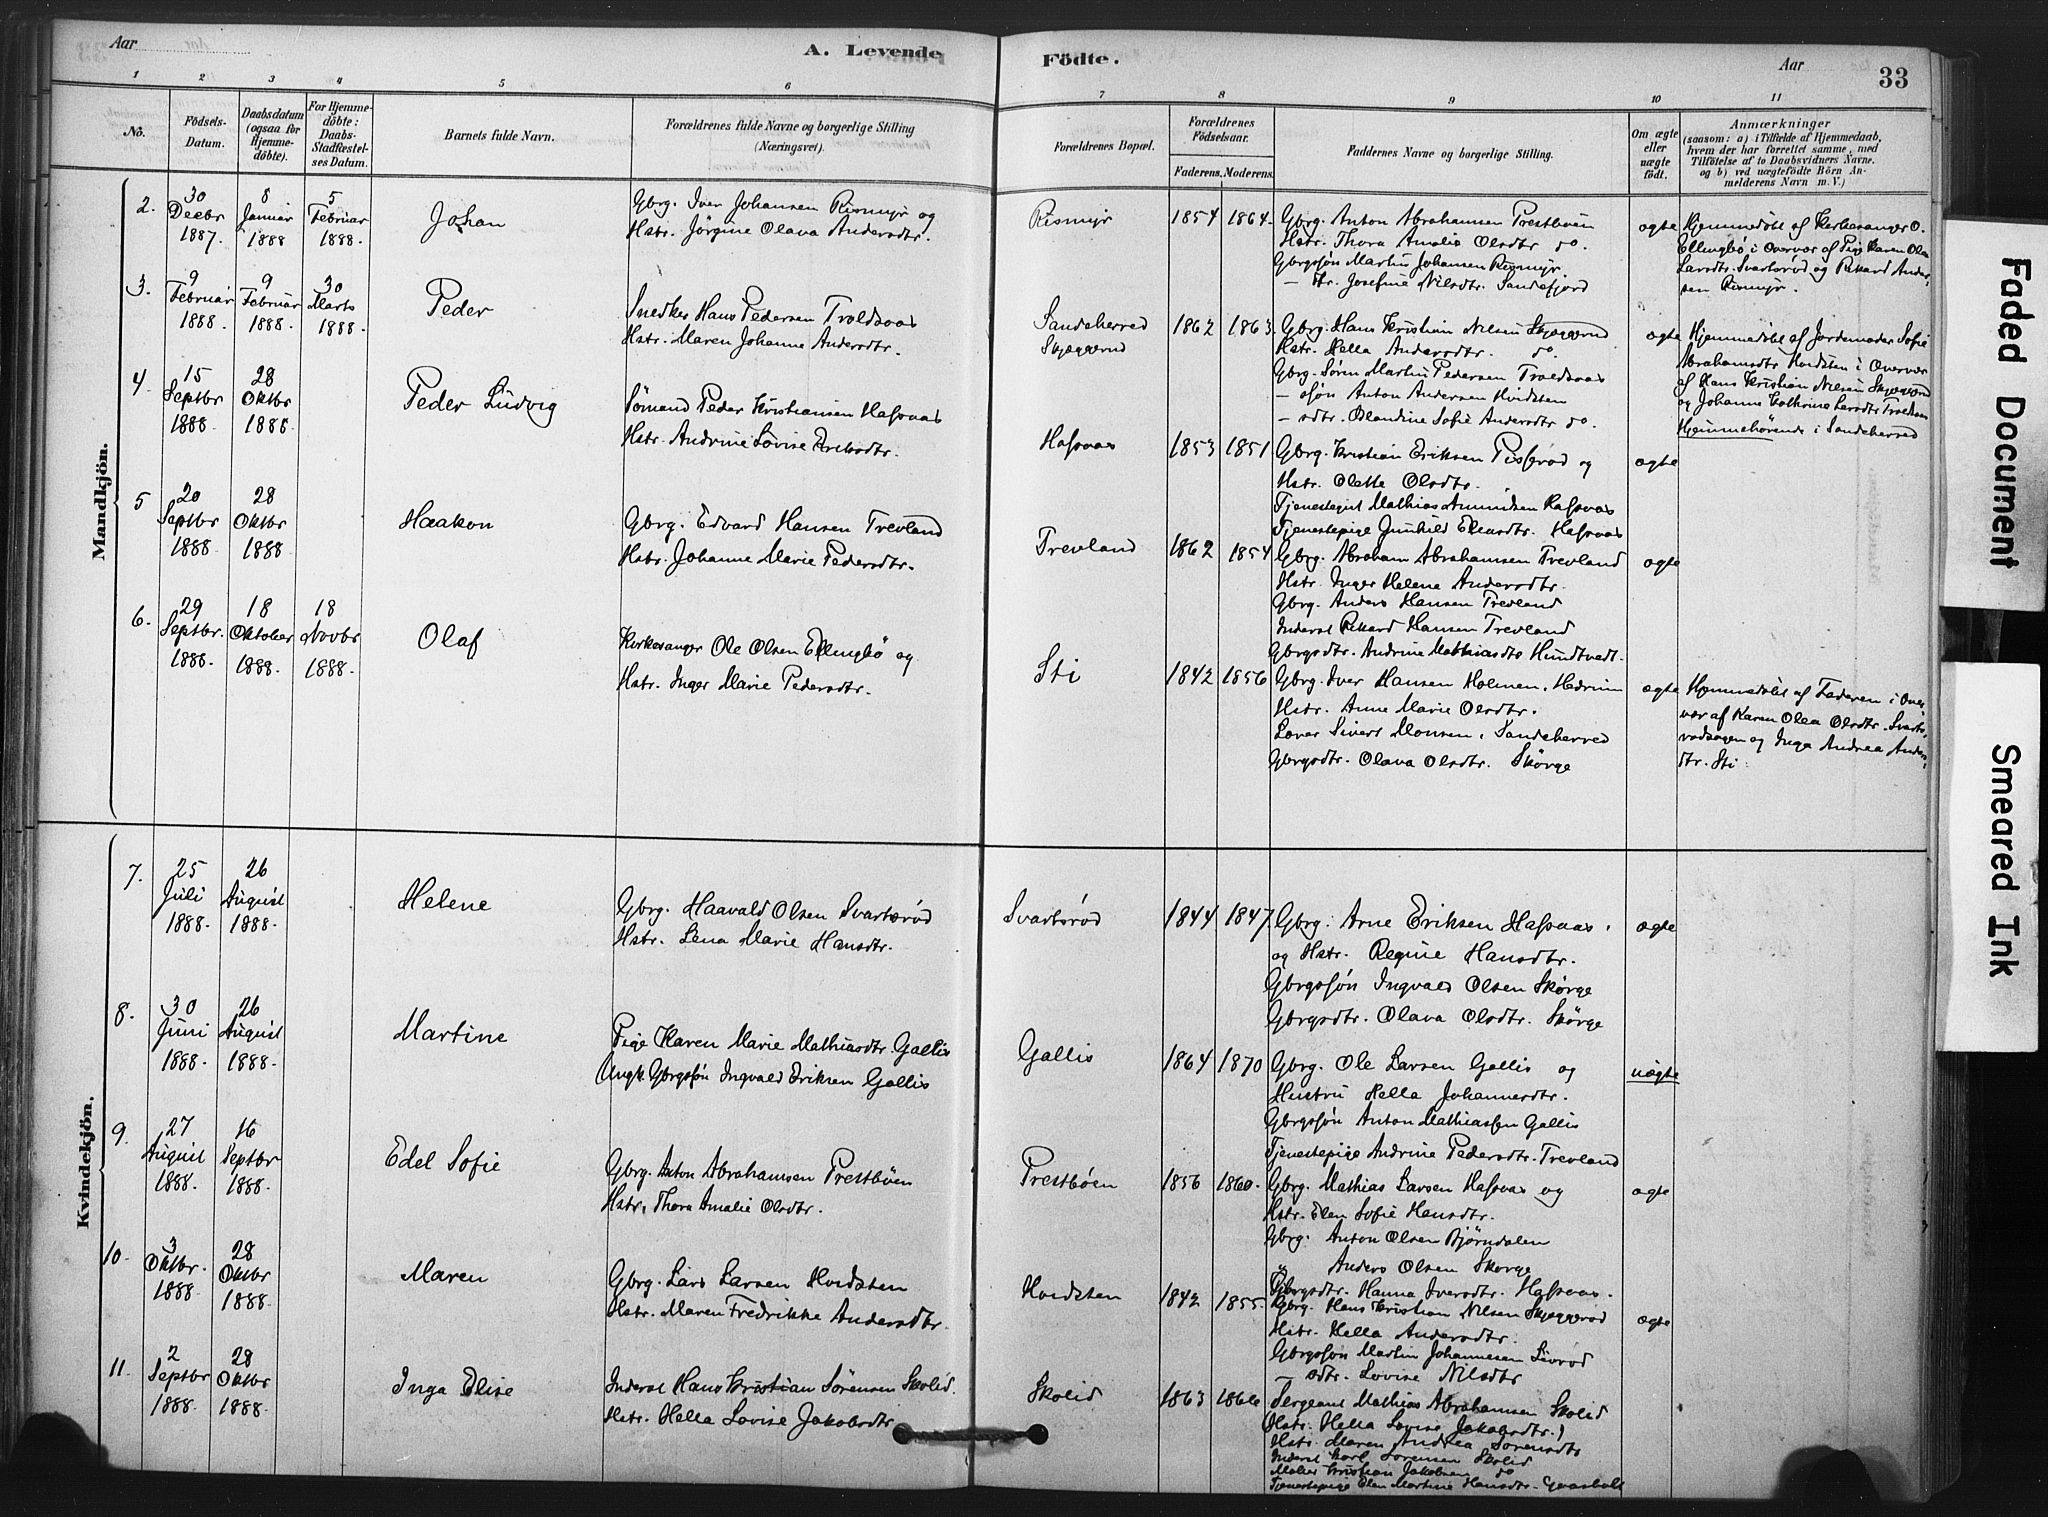 Aar
A. Levende Födte.
Aar
33
1 2 3 4 5 6 7 8 9 10 11
No.
Födsels-Datum.
Daabsdatum (ogsaa for Hjemmedöbte).
For Hjemmedöbte: Daabs-Stadfæstelses Datum.
Barnets fulde Navn.
Forældrenes fulde Navne og borgerlige Stilling (Næringsvei).
Forældrenes Bopæl.
Forældrenes Födselsaar.
Faderens. Moderens.
Faddernes Navne og borgerlige Stilling.
Om ægte eller uægte födt.
Anmærkninger
(saasom: a) i Tilfælde af Hjemmedaab, hvem der har forrettet samme, med Tilföielse af to Daabsvidners Navne, og b) ved uægtefödte Börn Anmelderens Navn m. V.)
Mandkjön.
2.
30 Decbr 1887.
8 Januar 1888
5 Februar 1888.
Johan
Gbrg. Iver Johansen Rismyr og
Hstr. Jörgine Olava Andersdtr.
Rismyr
1854 1864.
Gbrg. Anton Abrahamsen Prestböen
Hstr. Thora Amalie Olsdtr do.
Gbrgsøn Martin Johansen Rismyr
— Hr. Josefine Nilsdtr. Sandefjord
ægte
Hjemmedöbt af Kirkesanger O.
Ellingbö i Overvær af Pige Karen Olea
Larsdtr. Svartsröd og Rikard Ander-
sen Rismyr.
3.
9 Februar 1888.
9 Februar 1888.
30 Marts 1888.
Peder
Snedker Hans Pedersen Troldsaas
Hstr. Maren Johanne Andersdtr.
Sandeherred
Skjæggerød
1862 1863.
Gbrg. Hans Kristian Nilsen Skjæggerød
Hstr. Hella Andersdtr. do.
Gbrg. Søren Martin Pedersen Troldsaas
— søn Anton Andersen Hvidsten
— sdtr. Olandine Sofie Andersdtr do.
ægte
Hjemmedöbt af Jordemoder Sofie
Abrahamsdtr Hvidsten i Overvær
af Hans Kristian Nilsen Skjæggerød
og Johanne Kathrine Larsdtr Troldsaas
Hjemmehörende i Sandeherred
4
15 Septbr 1888
28 Oktbr 1888.
Peder Ludvig
Sömand Peder Kristiansen Hafsaas
Hstr. Andrine Lovise Eriksdtr.
Hafsaas
1853 1851
Gbrg. Kristian Eriksen og
Hstr. Olette Olsdtr.
Tjenestegut Mathias Amundsen Hafsaas
Tjenestepige Gunhild Hafsaas
ægte
5
20 Septbr 1888
28 Oktbr 1888.
Haakon
Gbrg. Edvard Hansen Trevland
Hstr. Johanne Marie Pedersdtr.
Trevland
1862 1854
Gbrg. Abraham Abrahamsen Trevland
Hstr. Inger Helene Andersdtr.
Gbrg. Anders Hansen Trevland
Inderst Rikard Hansen Trevland
Gbrgsdtr. Andrine Mathiasdtr Hundtvedt.
ægte
6.
29 Septbr. 1888.
18 Oktober 1888.
18 Novbr 1888.
Olaf
Kirkesanger Ole Olsen Ellingbö og
Hstr. Inger Marie Pedersdtr.
Sti
1842 1856
Gbrg. Iver Hansen Holmen, Hedrum
Hstr. Anne Marie Olsdtr.
Lærer Sivert Monsen, Sandeherred
Gbrgsdtr. Olava Olsdtr. Skörge
ægte
Hjemmedöbt af Faderen i Over-
vær af Karen Olea Olsdtr. Svarts-
rødsagen og Inga Andrea Anders-
dtr. Sti
Kvindekjön.
7.
25 Juli 1888.
26 August 1888.
Helene
Gbrg. Haavald Olsen Svartsröd
Hstr. Lena Marie Hansdtr.
Svartsröd
1844 1847.
Gbrg. Arne Eriksen Hafsaas,
og Hstr. Regine Hansdtr.
Gbrgssön Ingvald Olsen Skörge
Gbrgsdtr. Olava Olsdtr. Skörge
ægte
8.
30 Juni 1888.
26 August 1888.
Martine
Pige Karen Marie Mathiasdtr. Gallis
Ungk. Gbrgssön Ingvald Eriksen Gallis
Gallis
1864 1870
Gbrg. Ole Larsen Gallis og
Hustru Hella Johannesdtr.
Gbrgssön Anton Mathiassen Gallis
Tjenestepige Andrine Pedersdtr. Trevland
uægte
9.
27 August 1888.
16 Septbr 1888.
Edel Sofie
Gbrg. Anton Abrahamsen Prestböen
Hstr. Thora Amalie Olsdtr.
Prestböen
1856 1860.
Gbrg. Mathias Larsen Hafsaas og
Hstr. Elen Sofie Hansdtr.
Gbrg. Anton Olsen Bjørndalen
" Anders Olsen Skorge
Gbrgsdtr. Hanna Iversdtr. Hafsaas.
ægte
10.
3 Oktbr. 1888.
28 Oktbr 1888.
Maren
Gbrg. Lars Larsen Hvidsten
Hstr. Maren Fredrikke Andersdtr.
Hvidsten
1842 1855.
Gbrg. Hans Kristian Nilsen Skjæggerød
Hstr. Hella Andersdtr.
Gbrgssøn Martin Johannesen Liverød
— sdtr. Lovise Nilsdtr
ægte
11.
2 Septbr 1888.
28 Oktbr 1888.
Inga Elise
Inderst Hans Kristian Sörensen Skolid.
Hstr. Hella Lovise Jakobsdtr
Skolid
1863 1866
Sergeant Mathias Abrahamsen Skolid
Hstr. Hella Lovise Jakobsdtr.)
Hstr. Maren Andrea Sorensdtr
Inderst Karl Sorensen Skolid
Maler Kristian Jakobsen do
Tjenestepige Elen Martine Hansdtr. Gaasholt
Faded Document
Smeared Ink